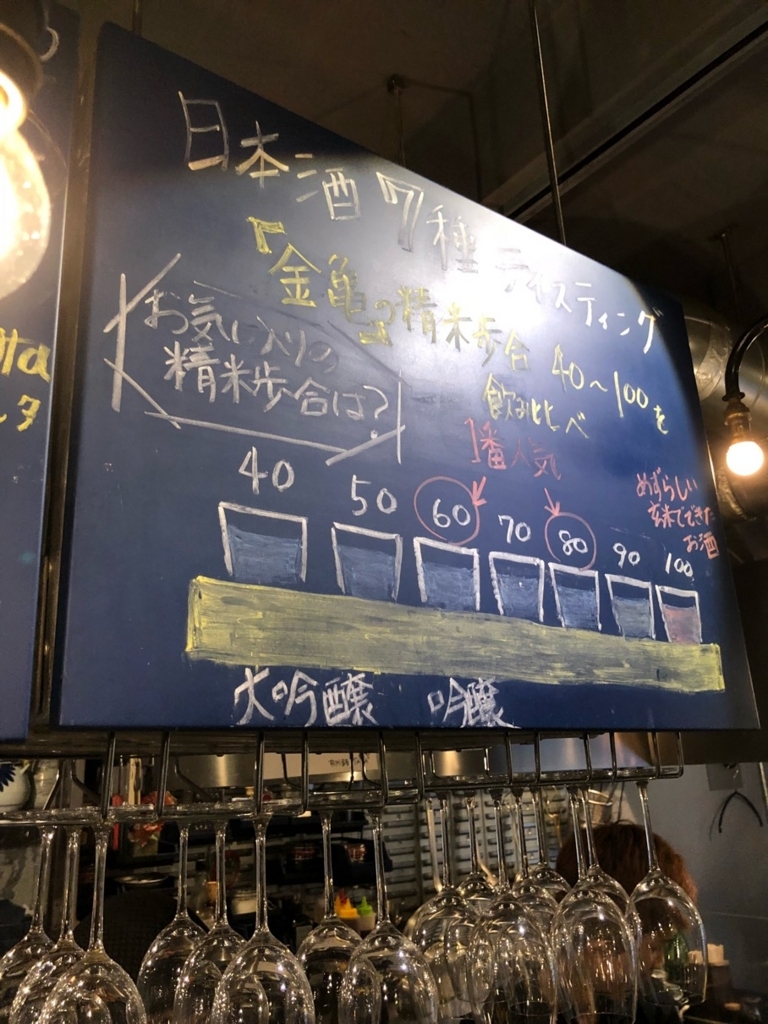 日本酒7種 ティスティング
『金亀』の精米歩合 40〜100を
飲み比べ
お気に入りの
精米歩合は?
1番人気
めずらしい
玄米でできた
お酒
40 50 60 70 80 90 100
大吟醸 吟醸